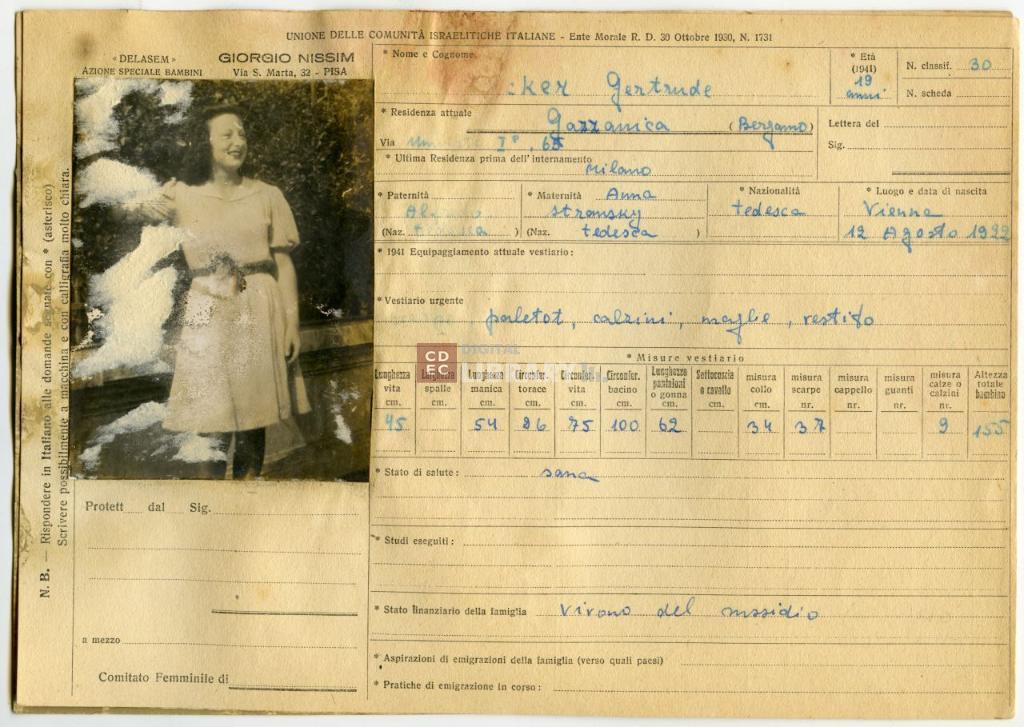 UNIONE DELLE COMUNITÀ ISRAELITICHE ITALIANE - Ente Morale R. D. 30 Ottobre 1930, N. 1731
« DELASEM »
AZIONE SPECIALE BAMBINI
GIORGIO NISSIM
Via S. Marta, 32 - PISA
* Nome e Cognome
cker Gertrude
* Età
(1941)
19
anni
N. classif. 30
N. scheda
* Residenza attuale
Gazzanica (Bergamo)
Via I°, 65
Lettera del
Sig.
* Ultima Residenza prima dell'internamento
Milano
* Paternità
(Naz. )
* Maternità Anna
Stransky
(Naz. tedesca )
* Nazionalità
tedesca
* Luogo e data di nascita
Vienna
12 Agosto 1922
* 1941 Equipaggiamento attuale vestiario :
* Vestiario urgente
paletot, calzini, maglie, vestito
* Misure vestiario
Lunghezza vita cm. 45
Larghezza spalle cm.
Lunghezza manica cm. 54
Circonfer. torace cm. 86
Circonfer. vita cm. 75
Circonfer. bacino cm. 100
Lunghezza pantaloni o gonna cm. 62
Sottocoscia o cavallo cm.
misura collo cm. 34
misura scarpe nr. 37
misura cappello nr.
misura guanti nr.
misura calze o calzini nr. 9
Altezza totale bambino 155
* Stato di salute : sana
* Studi eseguiti :
* Stato finanziario della famiglia Vivono del sussidio
* Aspirazioni di emigrazioni della famiglia (verso quali paesi)
* Pratiche di emigrazione in corso :
Protett dal Sig.
a mezzo
Comitato Femminile di
N. B. — Rispondere in Italiano alle domande segnate con * (asterisco)
Scrivere possibilmente a macchina e con calligrafia molto chiara.
CD
EC
DIGITAL